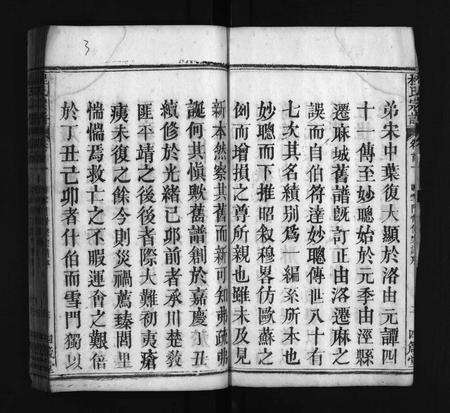 弟宋中葉復大顯於洛由元譚四
十一傳至妙聰始於元季由涇縣
遷麻城舊譜既訂正由洛遷麻之
誤而自伯符達妙聰傳世八十有
七次其名績別為一編系所本也
妙聰而下推昭叙穆畧仿歐蘇之
例而增損之尊所親也雖未及見
新本然察其舊而新可知弗疏弗
誕何其慎歟舊譜創於嘉慶
丑
續修於光緒己卯前者承川楚教
匪平靖之後後者際大難初夷瘡
痍未復之餘今則災禍薦臻閭里
惴惴焉救亡之不暇運會之艱倍
於丁丑己卯者什伯而雪門獨以
3